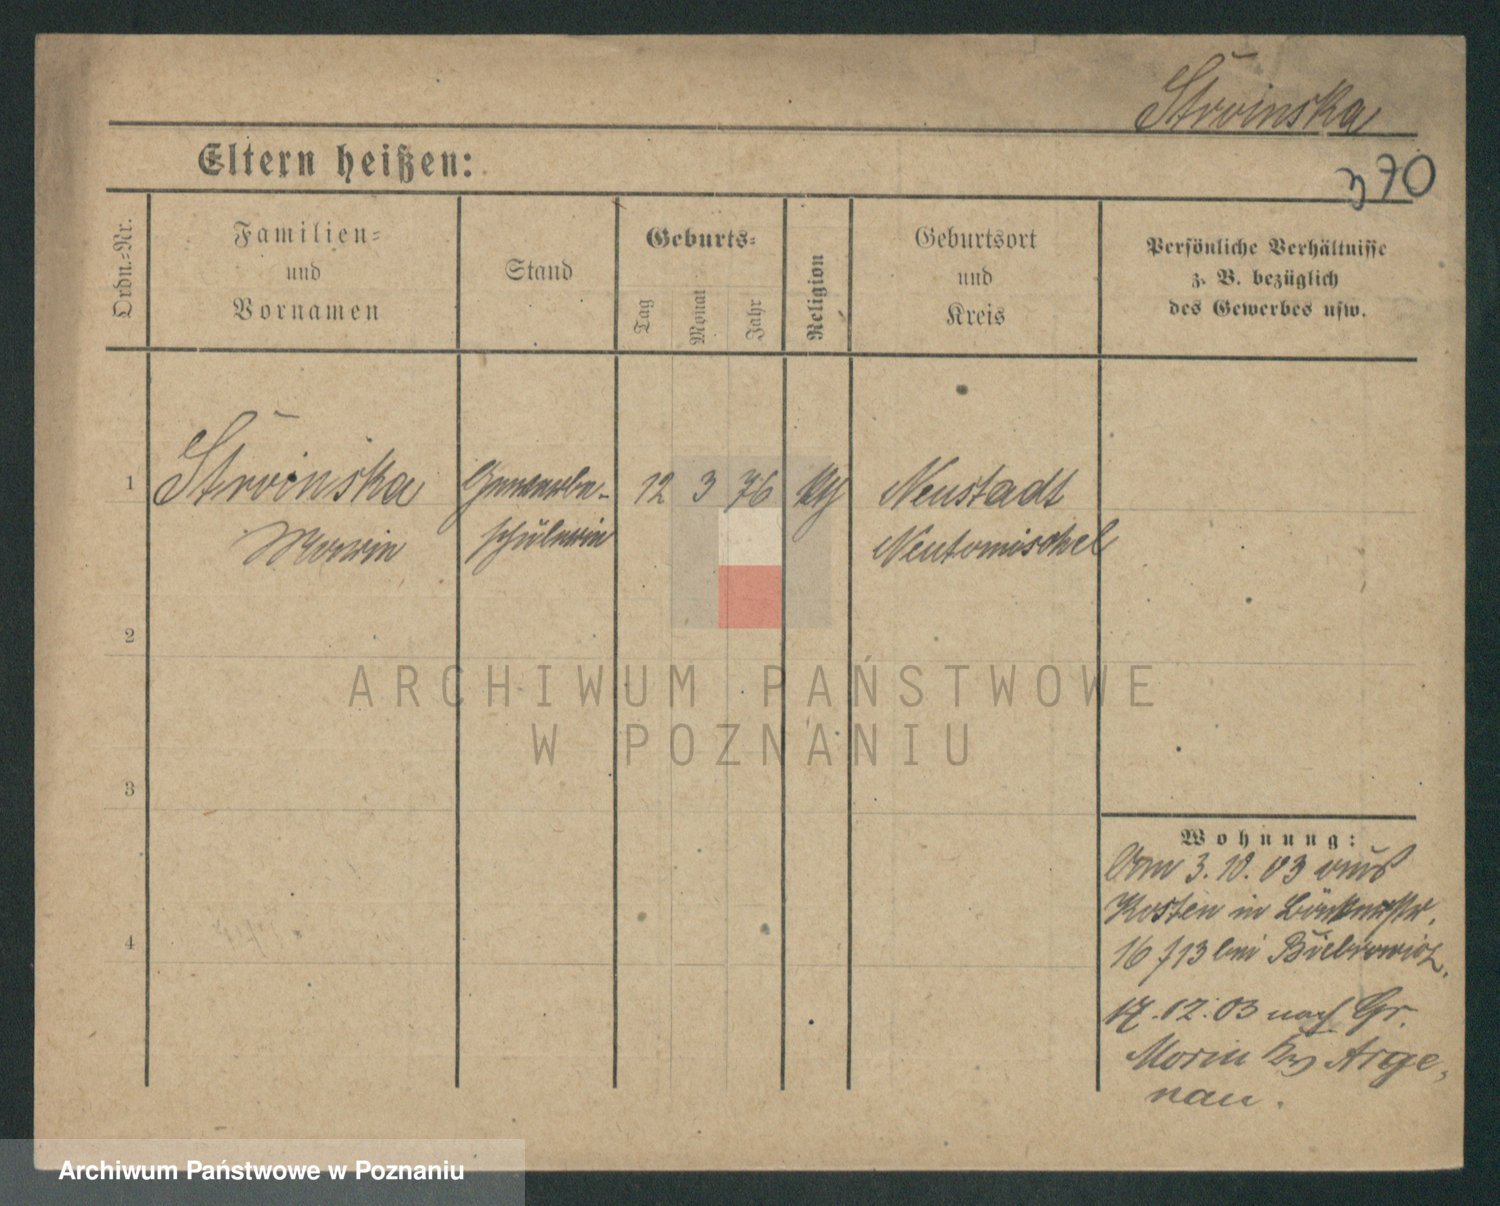 Stroinska
370
Eltern heißen:
Ordn.-Nr.
Familien-
und
Vornamen
Stand
Geburts-
Tag
Monat
Jahr
Religion
Geburtsort
und
Kreis
Persönliche Verhältnisse
z. B. bezüglich
des Gewerbes usw.
1
Stroinska
Gewerbe-
12 3 76
Neustadt
schülerin
Neutomischel
2
ARCHIWUM PAŃSTWOWE
W POZNANIU
3
Wohnung:
Vom 3. 10. 03 aus
Kosten in
16 bei
17. 12. 03 nach Gr.
Morin Arge-
nau.
4
Archiwum Państwowe w Poznaniu